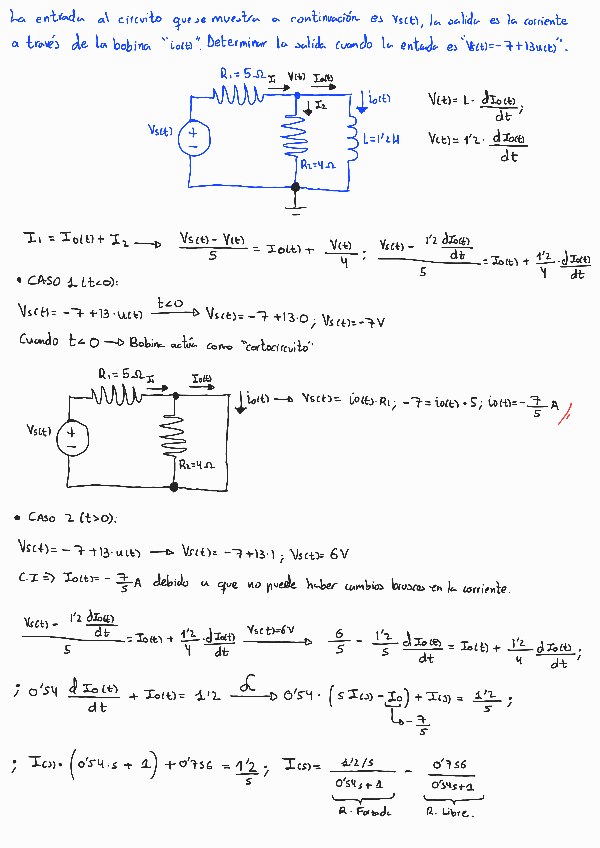 La entrada al circuito que se muestra a continuación es Vs(t), la salida es la corriente
a través de la bobina "io(t)". Determinar la salida cuando la entada es "Vs(t)=-7+13u(t)".
R₁=5Ω I₁ V(t) Io(t)
↓I₂ ↓io(t)
Vs(t) + − R₂=4Ω L=1'2H
V(t)= L· dIo(t)/dt;
V(t)= 1'2· dIo(t)/dt
I₁ = Io(t) + I₂ → (Vs(t)-V(t))/5 = Io(t) + V(t)/4 ; (Vs(t) - 1'2 dIo(t)/dt)/5 = Io(t) + 1'2/4 · dIo(t)/dt
• CASO 1 (t<0):
Vs(t)= -7+13·u(t) t<0 → Vs(t)= -7+13·0; Vs(t)=-7V
Cuando t<0 → Bobina actúa como "cortocircuito"
R₁=5Ω I₁ Io(t)
Vs(t) + − R₂=4Ω
↓io(t) → Vs(t)= io(t)·R₁; -7=io(t)·5; io(t)=-7/5 A
• CASO 2 (t>0):
Vs(t)= -7+13·u(t) → Vs(t)= -7+13·1; Vs(t)= 6V
C.I ⇒ Io(t)= -7/5 A debido a que no puede haber cambios bruscos en la corriente.
(Vs(t) - 1'2 dIo(t)/dt)/5 = Io(t) + 1'2/4 · dIo(t)/dt Vs(t)=6V → 6/5 - 1'2/5 dIo(t)/dt = Io(t) + 1'2/4 dIo(t)/dt;
; 0'54 dIo(t)/dt + Io(t)= 1'2 ℒ → 0'54 · (s I(s) - Io) + I(s) = 1'2/s ;
↳ -7/5
; I(s)·(0'54·s + 1) + 0'756 = 1'2/s ; I(s)= (1'2/s)/(0'54s+1) - 0'756/(0'54s+1)
R. Forzada R. Libre.